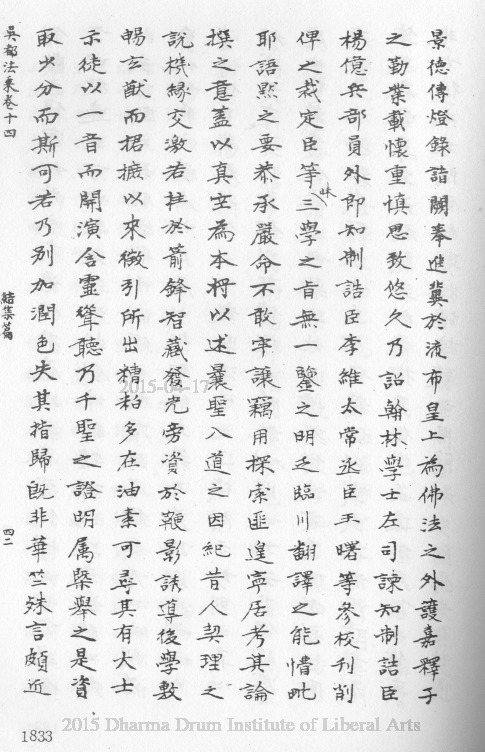 景德傳燈錄詣闕奉進冀於流布皇上為佛法之外護嘉釋子
之勤業載懷重慎思致悠久乃詔翰林學士左司諫知制誥臣
楊億兵部員外郎知制誥臣李維太常丞臣王曙等參校刊削
俾之裁定臣等昧三學之旨無一鑒之明乏臨川翻譯之能惜毗
耶語默之要恭承嚴命不敢牢讓竊用探索匪遑寧居考其論
撰之意蓋以真空為本將以述曩聖入道之因紀昔人契理之
說機緣交激若拄於箭鋒智藏發光旁資於鞭影誘導後學敷
暢玄猷而捃摭以來徵引所出糟粕多在油素可尋其有大士
示徒以一音而開演含靈聳聽乃千聖之證明属槩舉之是資
取少分而斯可若乃別加潤色失其指歸既非華竺殊言頗近
吳都法乘卷十四
結集篇
四二
1833
2015-04-17
2015 Dharma Drum Institute of Liberal Arts